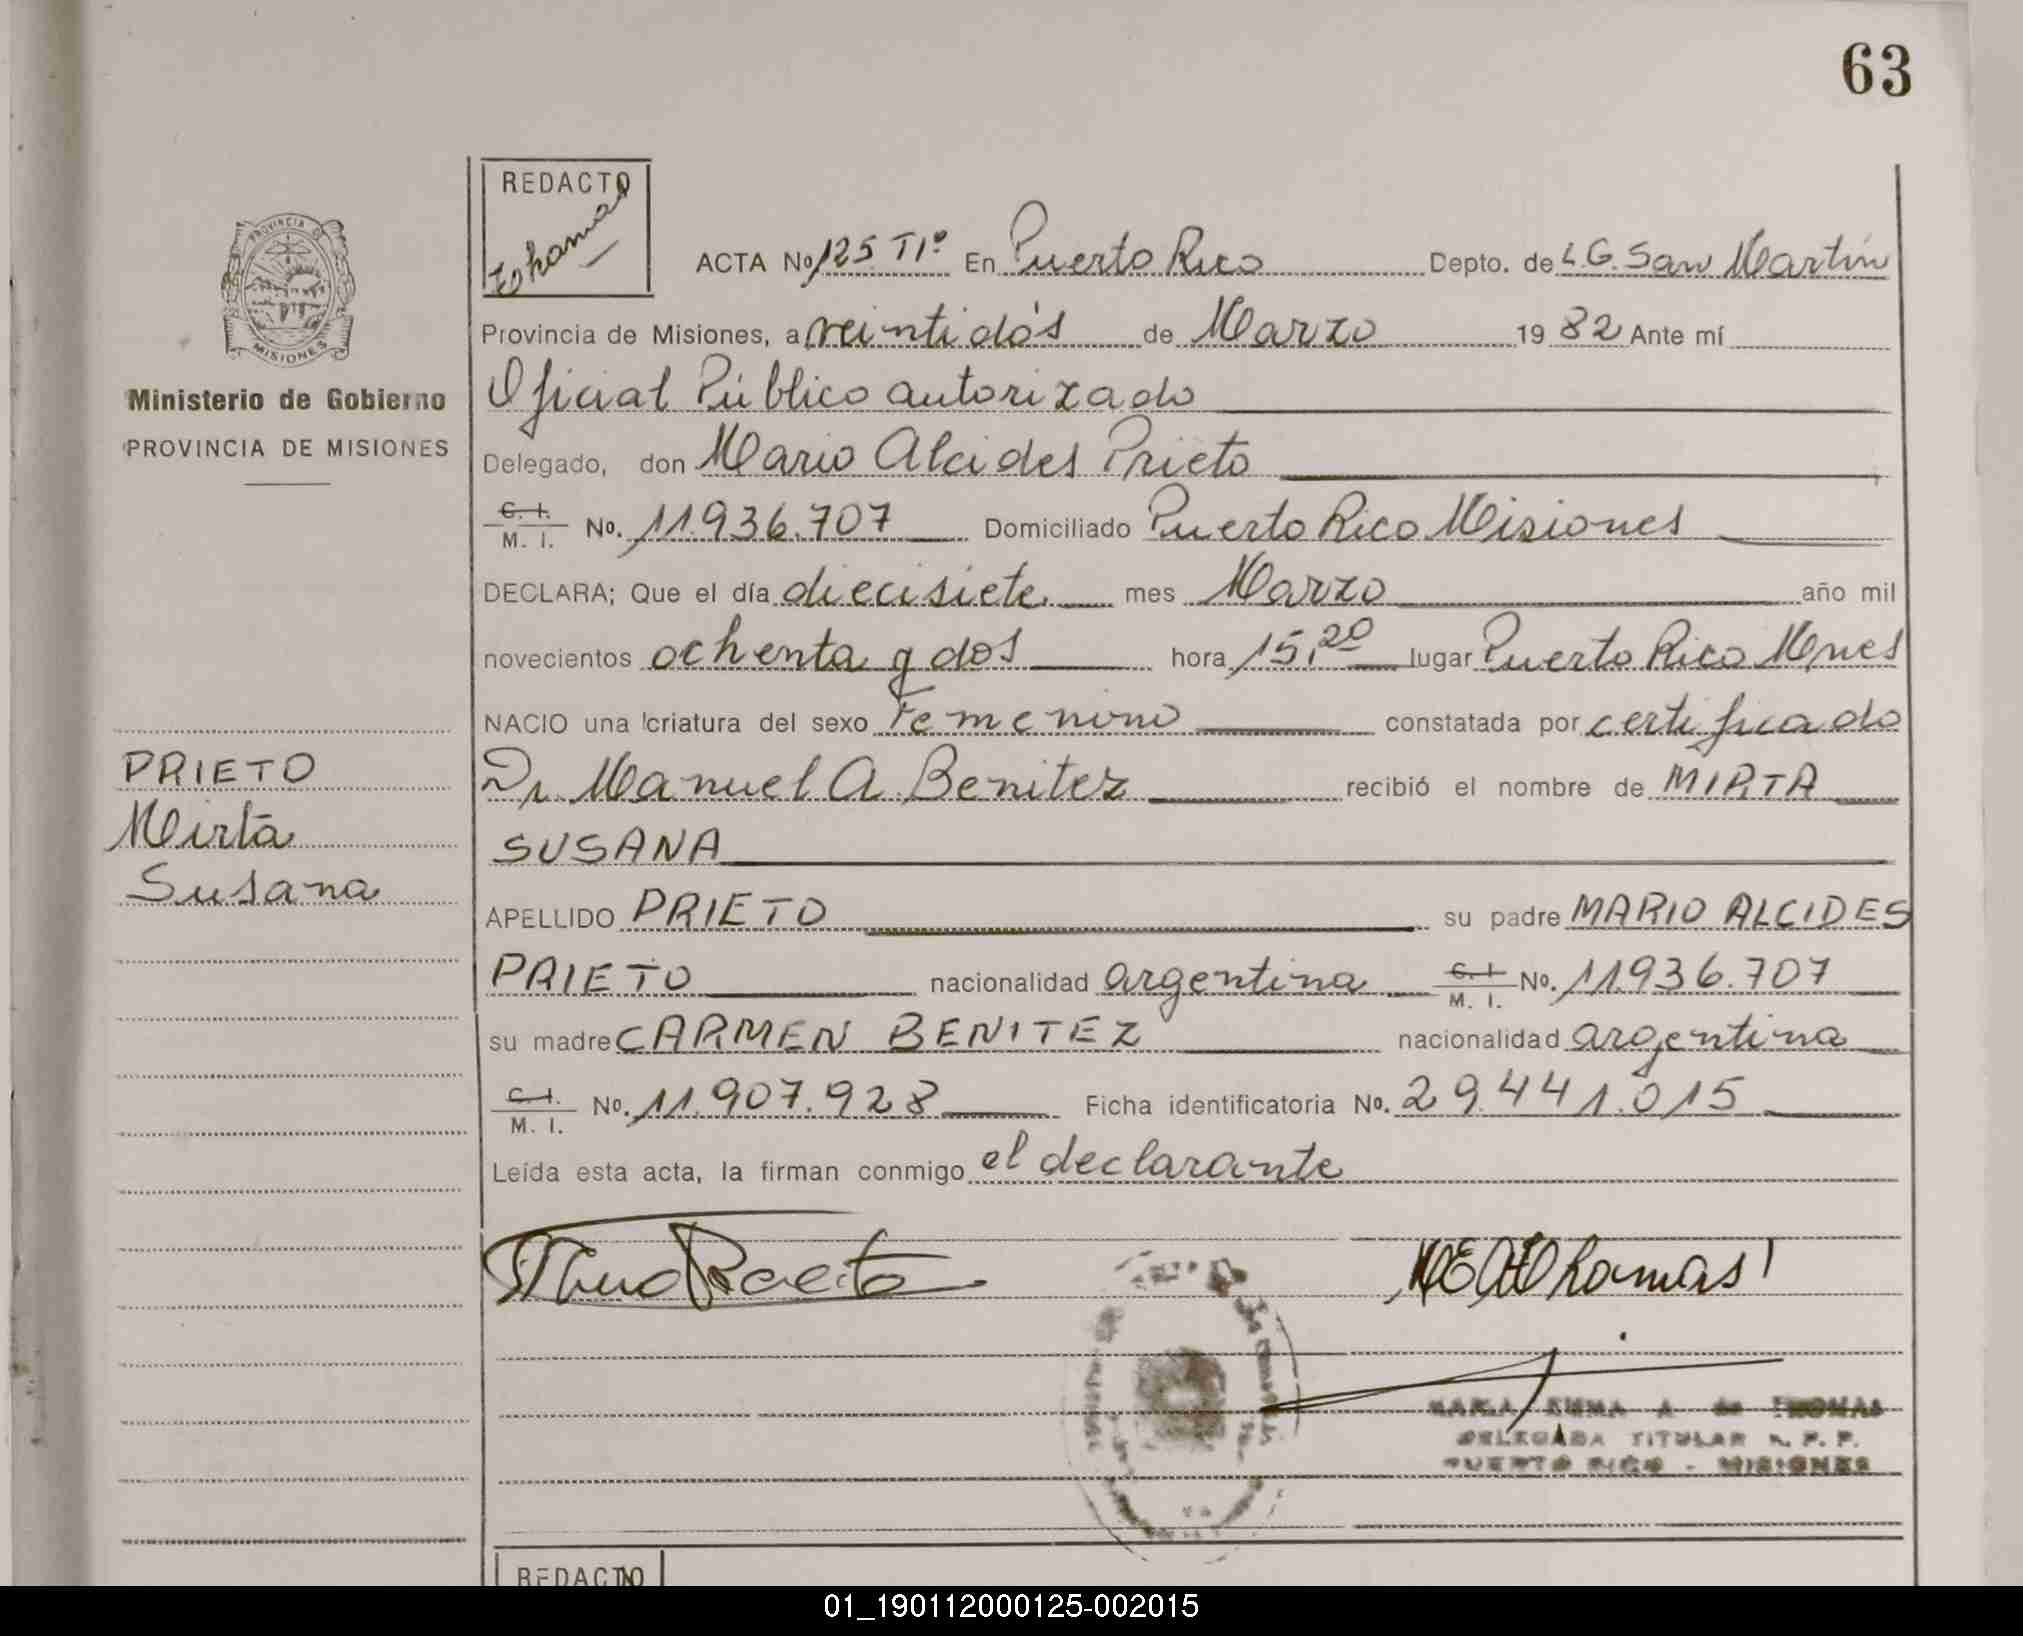 63
REDACTO
Thomas
PROVINCIA D
MISIONES
Ministerio de Gobierno
PROVINCIA DE MISIONES
PRIETO
Mirta
Susana
ACTA No 125 T1º En Puerto Rico Depto. de L.G. San Martín
Provincia de Misiones, a veintidós de Marzo 19 82 Ante mí
Oficial Público autorizado
Delegado, don Mario Alcides Prieto
C. I. / M. I. No. 11.936.707 Domiciliado Puerto Rico Misiones
DECLARA; Que el día diecisiete mes Marzo año mil
novecientos ochenta y dos hora 15,20 lugar Puerto Rico Mnes
NACIO una criatura del sexo Femenino constatada por certificado
Dr. Manuel A. Benitez recibió el nombre de MIRTA
SUSANA
APELLIDO PRIETO su padre MARIO ALCIDES
PRIETO nacionalidad argentina C. I. / M. I. No. 11.936.707
su madre CARMEN BENITEZ nacionalidad argentina
C. I. / M. I. No. 11.907.928 Ficha identificatoria No. 29.441.015
Leída esta acta, la firman conmigo el declarante
MARIA EMMA A. de THOMAS
DELEGADA TITULAR R. P. P.
PUERTO RICO - MISIONES
REDACTO
01_190112000125-002015